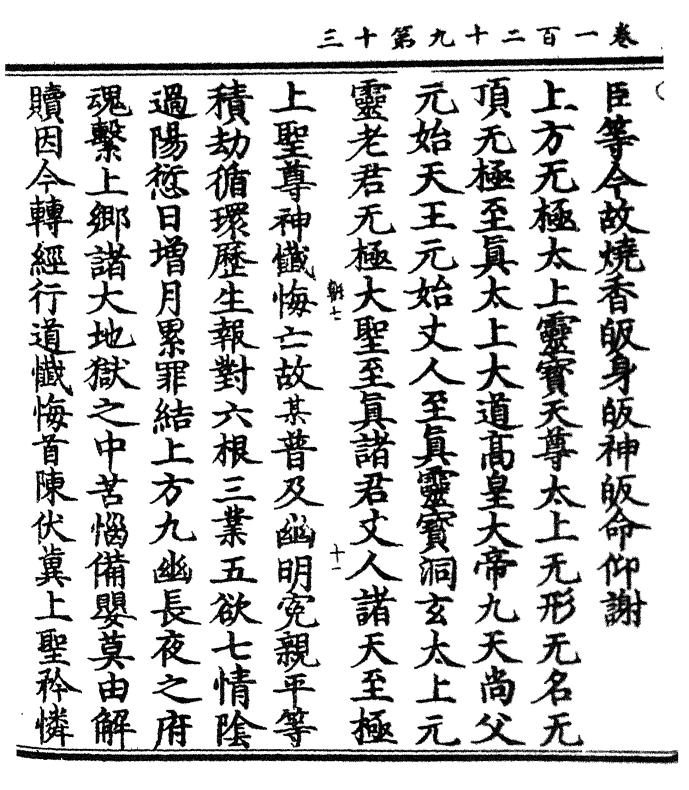 卷一百二十九第十三
臣等今故燒香皈身皈神皈命仰謝
上方无極太上靈寶天尊太上无形无名无
頂无極至眞太上大道高皇大帝九天尚父
元始天王元始丈人至眞靈寶洞玄太上元
靈老君无極大聖至眞諸君丈人諸天至極
十一
上聖尊神懺悔亡故某普及幽明寃親平等
積劫循環歷生報對六根三業五欲七情陰
過陽愆日增月累罪結上方九幽長夜之府
魂繫上鄉諸大地獄之中苦惱備嬰莫由解
贖因今轉經行道懺悔首陳伏冀上聖矜憐